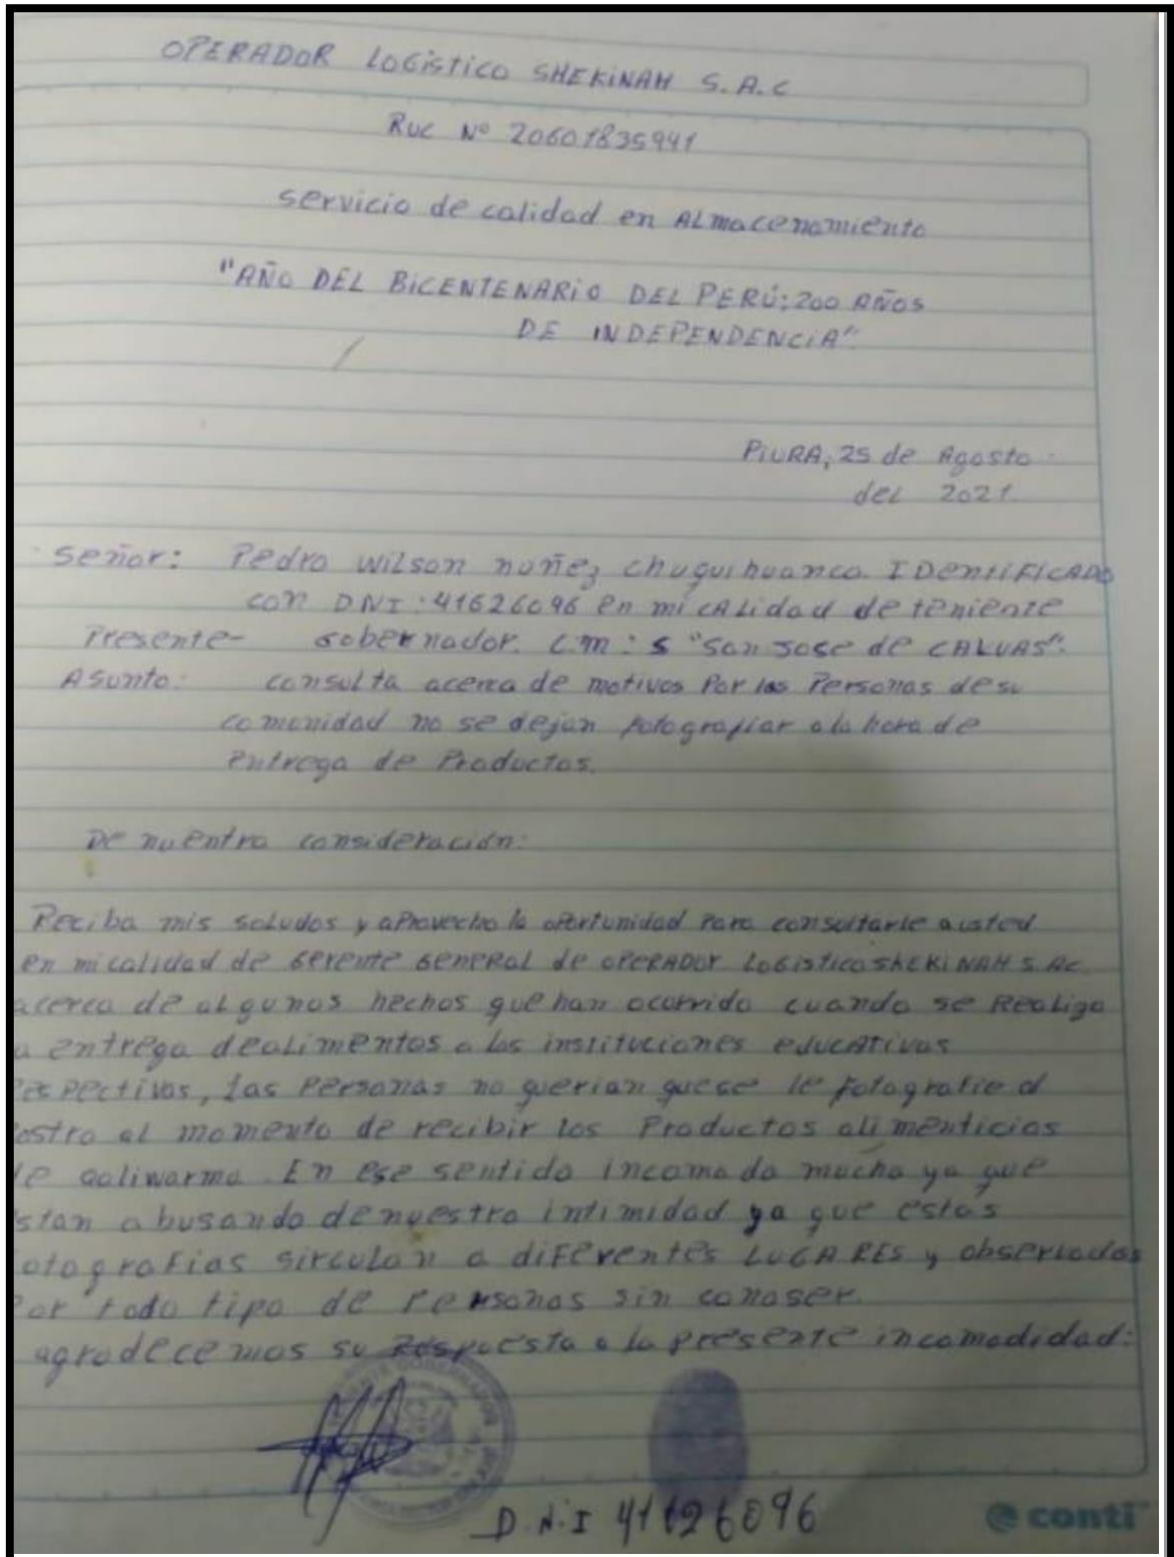 OPERADOR LOGíSTICO SHEKiNAH S.A.C
RUC Nº 20601835941
servicio de calidad en ALmacenamiento
"AÑO DEL BICENTENARIO DEL PERÚ: 200 AÑOS
DE INDEPENDENCIA".
PIURA, 25 de Agosto
del 2021
señor: Pedro Wilson nuñez chuquihuanca. IDENTIFICADO
con DNI: 41626096 en mi calidad de teniente
Presente- Gobernador. C.m: s "San Jose de CALVAS".
Asunto: consulta acerca de motivos Por las Personas de su
comunidad no se dejan fotografiar a la hora de
Entrega de Productos.
De nuentra consideración:
Reciba mis saludos y aProvecho la oPortunidad Para consultarle a usted
en mi calidad de Gerente General de OPERADOR LOGISTICO SHEKINAH S.AC
acerca de algunos hechos que han ocurrido cuando se Realigo
a entrega de alimentos a las instituciones educativas
respectivas, Las Personas no querian que se le fotografie el
ostro al momento de recibir los Productos alimenticios
de qaliwarma. En ese sentido incomoda mucho ya que
stan abusando de nuestra intimidad ya que estas
otografias sirculan a diferentes LUGARES y observados
Por todo tipo de Personas sin conoser.
agradecemos su Respuesta a la presente incomodidad:
D.N.I 41626096
conti